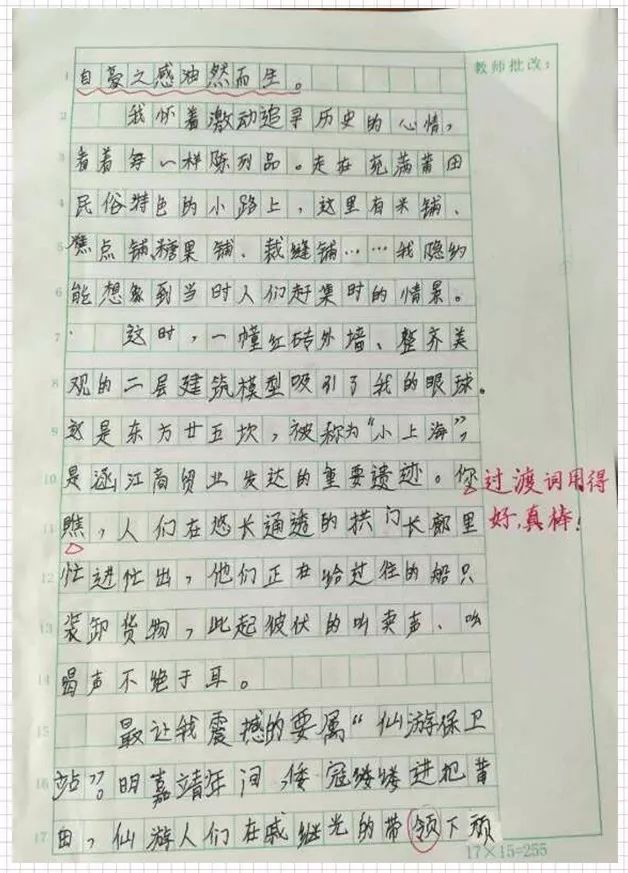 教师批改：
1 自豪之感油然而生。
2 我怀着激动追寻历史的心情，
3 看着每一样陈列品。走在充满莆田
4 民俗特色的小路上，这里有米铺、
5 点铺、糖果铺、裁缝铺……我隐约
6 能想象到当时人们赶集时的情景。
7 这时，一幢红砖外墙、整齐美
8 观的二层建筑模型吸引了我的眼球。
9 这是东方廿五坎，被称为“小上海”，
10 是涵江商贸业发达的重要遗迹。你
过渡词用得
11 瞧，人们在悠长通透的拱门长廊里
好，真棒！
12 忙进忙出，他们正在给过往的船只
13 装卸货物，此起彼伏的叫卖声、吆
14 喝声不绝于耳。
15 最让我震撼的要属“仙游保卫
16 站”。明嘉靖年间，倭寇缕缕进把莆
17 田，仙游人们在戚继光的带领下顽
17×15=255